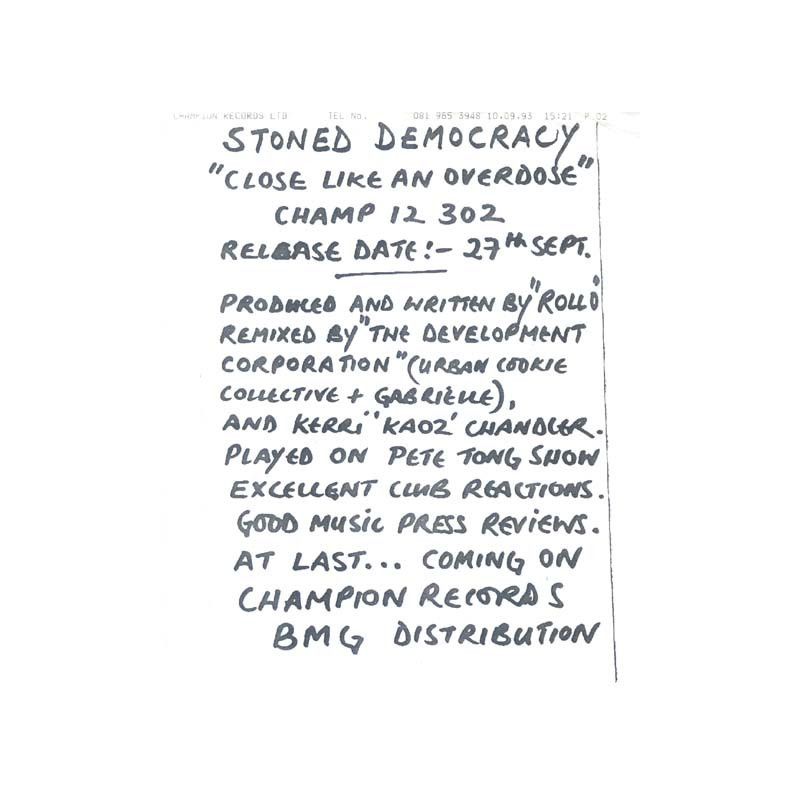 CHAMPION RECORDS LTD TEL No. 081 965 3948 10.09.93 15:21 P.02
STONED DEMOCRACY
"CLOSE LIKE AN OVERDOSE"
CHAMP 12 302
RELEASE DATE!- 27th SEPT.
PRODUCED AND WRITTEN BY "ROLLO"
REMIXED BY "THE DEVELOPMENT
CORPORATION" (URBAN COOKIE
COLLECTIVE + GABRIELLE),
AND KERRI "KAOZ' CHANDLER.
PLAYED ON PETE TONG SHOW
EXCELLENT CLUB REACTIONS.
GOOD MUSIC PRESS REVIEWS.
AT LAST... COMING ON
CHAMPION RECORDS
BMG DISTRIBUTION